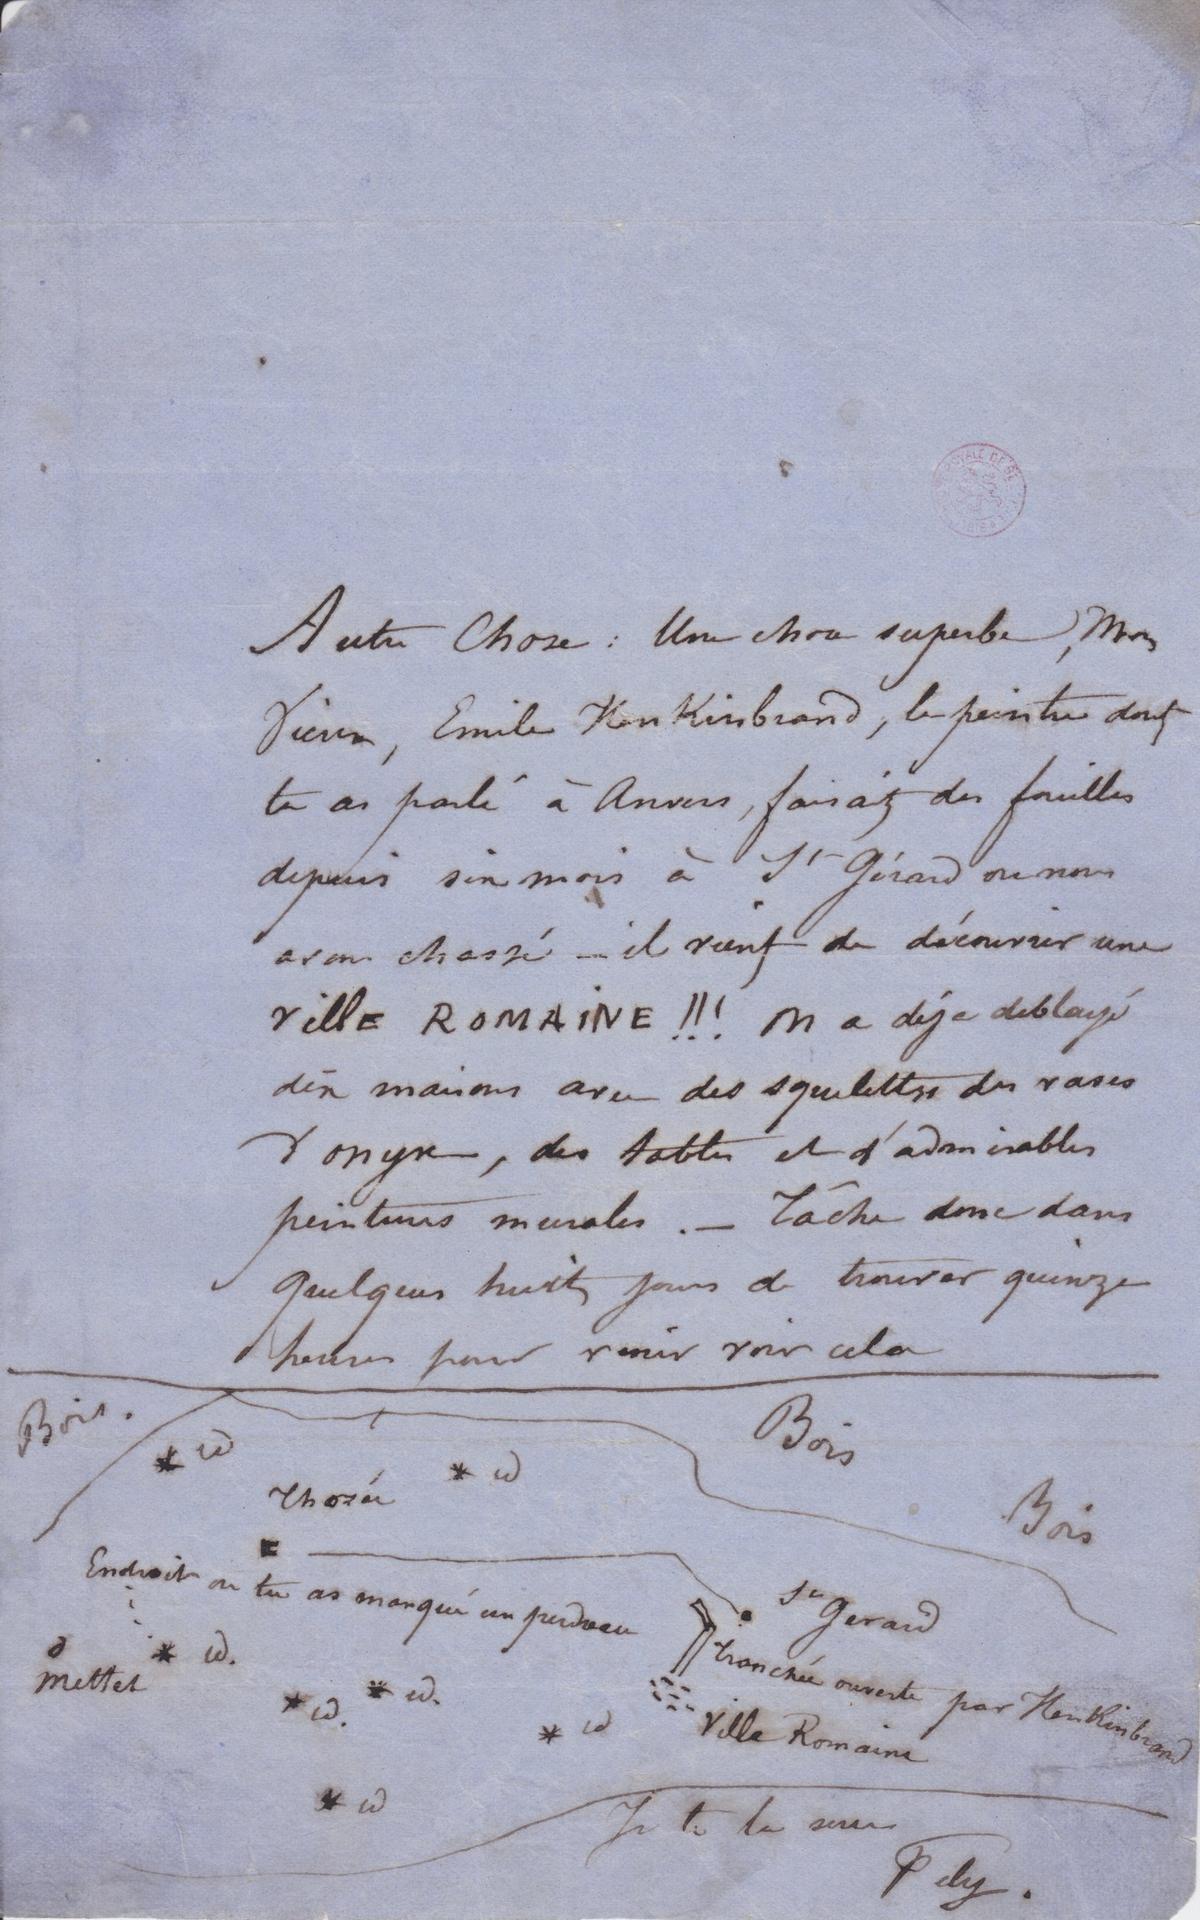 Autre Chose : Une chose superbe, Mon
Vieux, Emile HenKinbrand, le peintre dont
tu as parlé à Anvers, faisait des fouilles
depuis six mois à St Gérard ou nous
avons chassé – il vient de découvrir une
VillE ROMAiNE !!! On a déja deblayé
dix maisons avec des squelettes des vases
d'onyx, des tables et d'admirables
peintures murales. — Tâche donc dans
quelques huit jours de trouver quinze
heures pour venir voir cela
Bois.
Bois
Bois
id
id
Thozée
Endroit ou tu as manqué un perdreau
St Gerard
id.
Mettet
id.
id.
id
id
tranchée ouverte par HenKinbrand
Ville Romaine
Je te la serre
Fély.